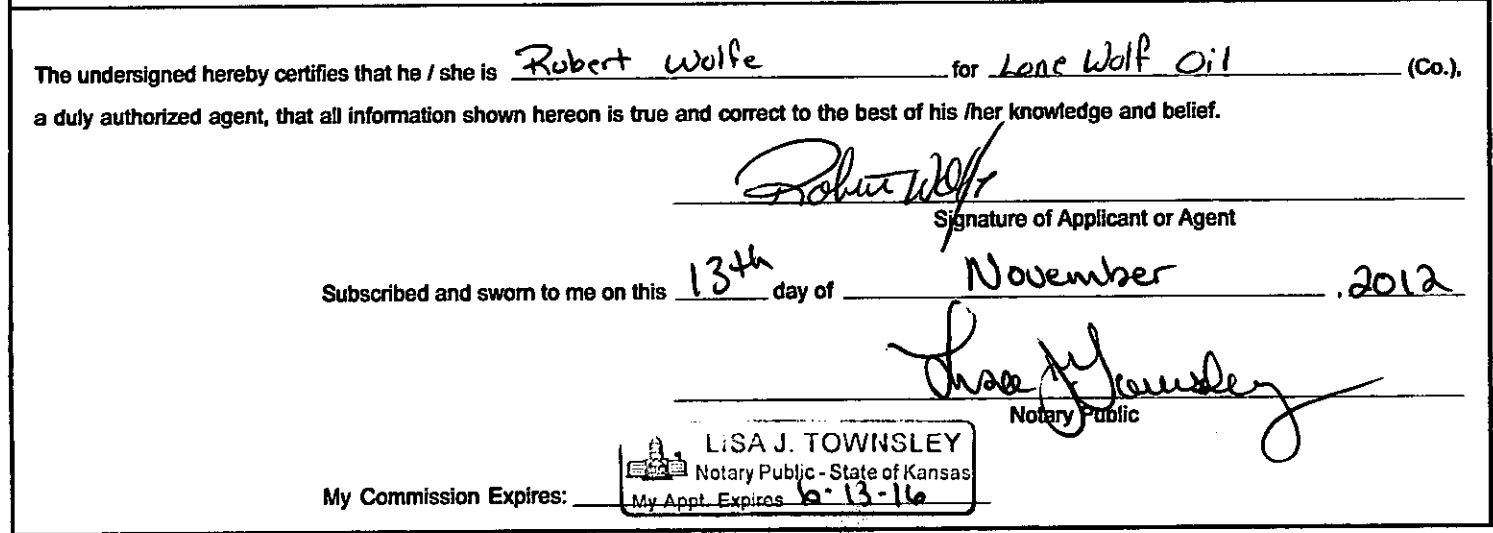 The undersigned hereby certifies that he / she is Robert Wolfe for Lone Wolf Oil (Co.),
a duly authorized agent, that all information shown hereon is true and correct to the best of his /her knowledge and belief.
Robert Wolfe
Signature of Applicant or Agent
Subscribed and sworn to me on this 13th day of November , 2012
Lisa J Townsley
Notary Public
LISA J. TOWNSLEY
Notary Public - State of Kansas
My Commission Expires: My Appt. Expires 6-13-16